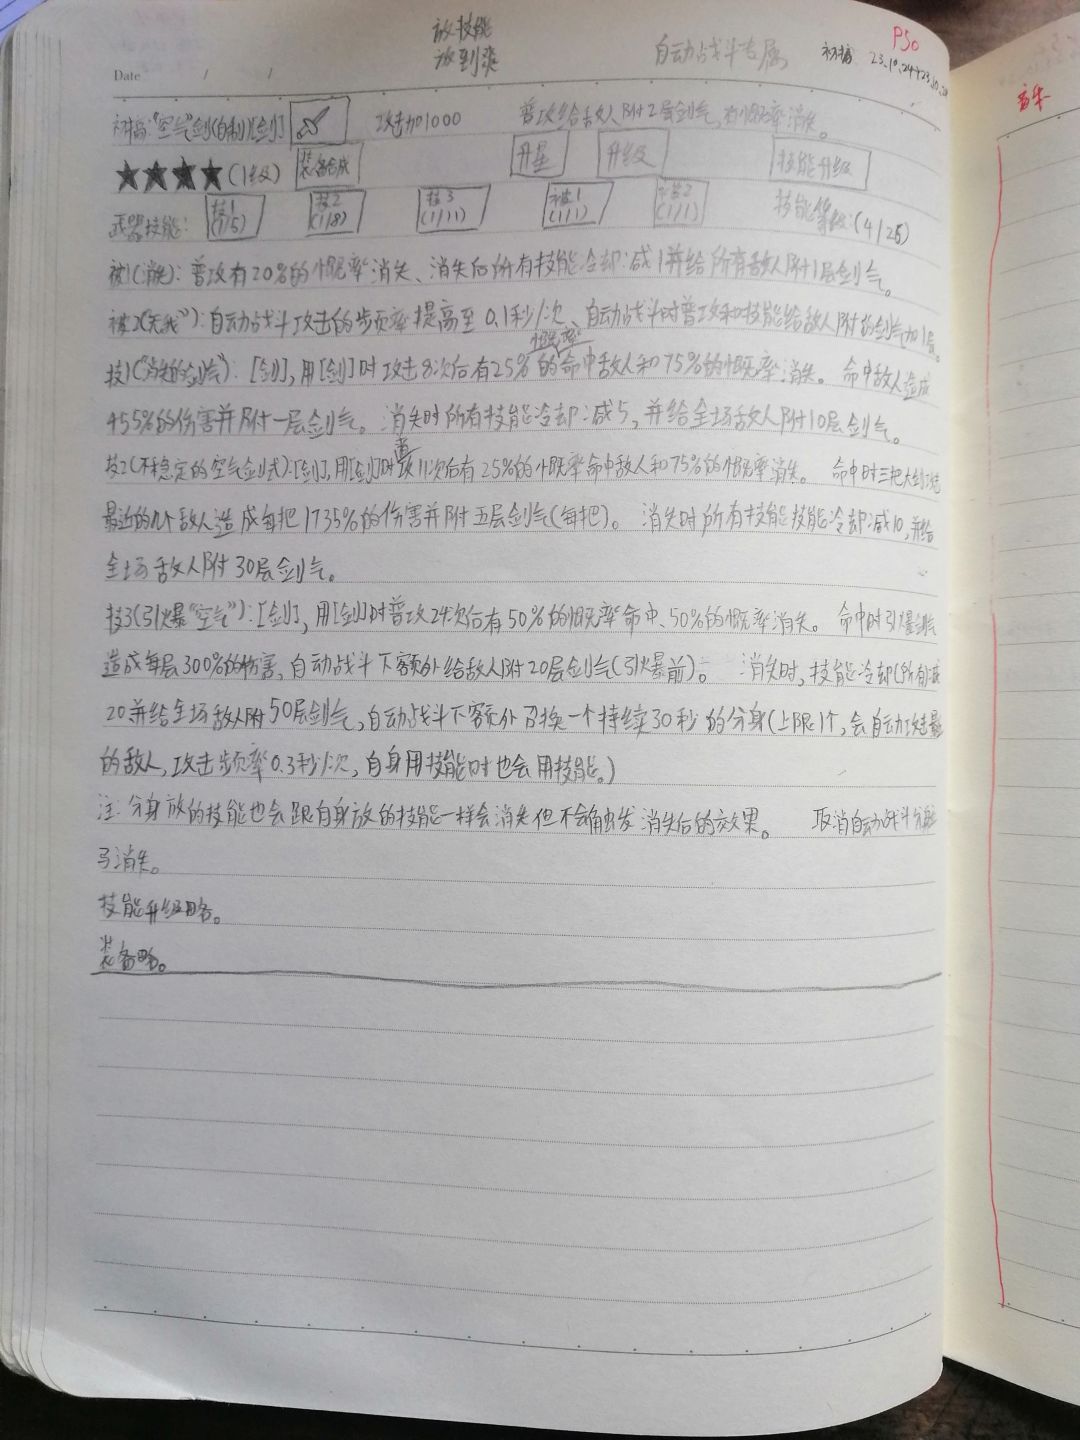 放技能
放到爽
自动战斗专属
初稿 23.10.24→23.10.
P50
Date / /
初稿:“空气”剑(自制)[剑] 攻击加1000 普攻给敌人附2层剑气,有概率消失。
★★★★(1级) 装备合成 升星 升级 技能升级
武器技能: 技1(1/5) 技2(1/8) 技3(1/11) 被1(1/1) 被2(1/1) 技能等级:(4/26)
被1(消失):普攻有20%的概率消失、消失后所有技能冷却减1并给所有敌人附1层剑气。
被2(“无我”):自动战斗攻击的步频率提高至0.1秒/次、自动战斗时普攻和技能给敌人附的剑气加1层。
技1(“消失的剑气”):[剑],用[剑]时攻击8次后有25%的概率命中敌人和75%的概率消失。 命中敌人造成
455%的伤害并附一层剑气。消失时所有技能冷却减5,并给全场敌人附10层剑气。
技2(不稳定的空气剑式):[剑],用[剑]时普攻11次后有25%的概率命中敌人和75%的概率消失。 命中时三把大剑攻击
最近的几个敌人造成每把1735%的伤害并附五层剑气(每把)。 消失时所有技能技能冷却减10,并给
全场敌人附30层剑气。
技3(引爆“空气”):[剑],用[剑]时普攻24次后有50%的概率命中、50%的概率消失。 命中时引爆剑气
造成每层300%的伤害,自动战斗下额外给敌人附20层剑气(引爆前)。 消失时,技能冷却(所有)减
20并给全场敌人附50层剑气,自动战斗下额外召换一个持续30秒的分身(上限1个,会自动攻击最
的敌人,攻击步频率0.3秒/次,自身用技能时也会用技能。)
注:分身放的技能也会跟自身放的技能一样会消失但不会触发消失后的效果。 取消自动战斗分身
马消失。
技能升级略。
装备略。